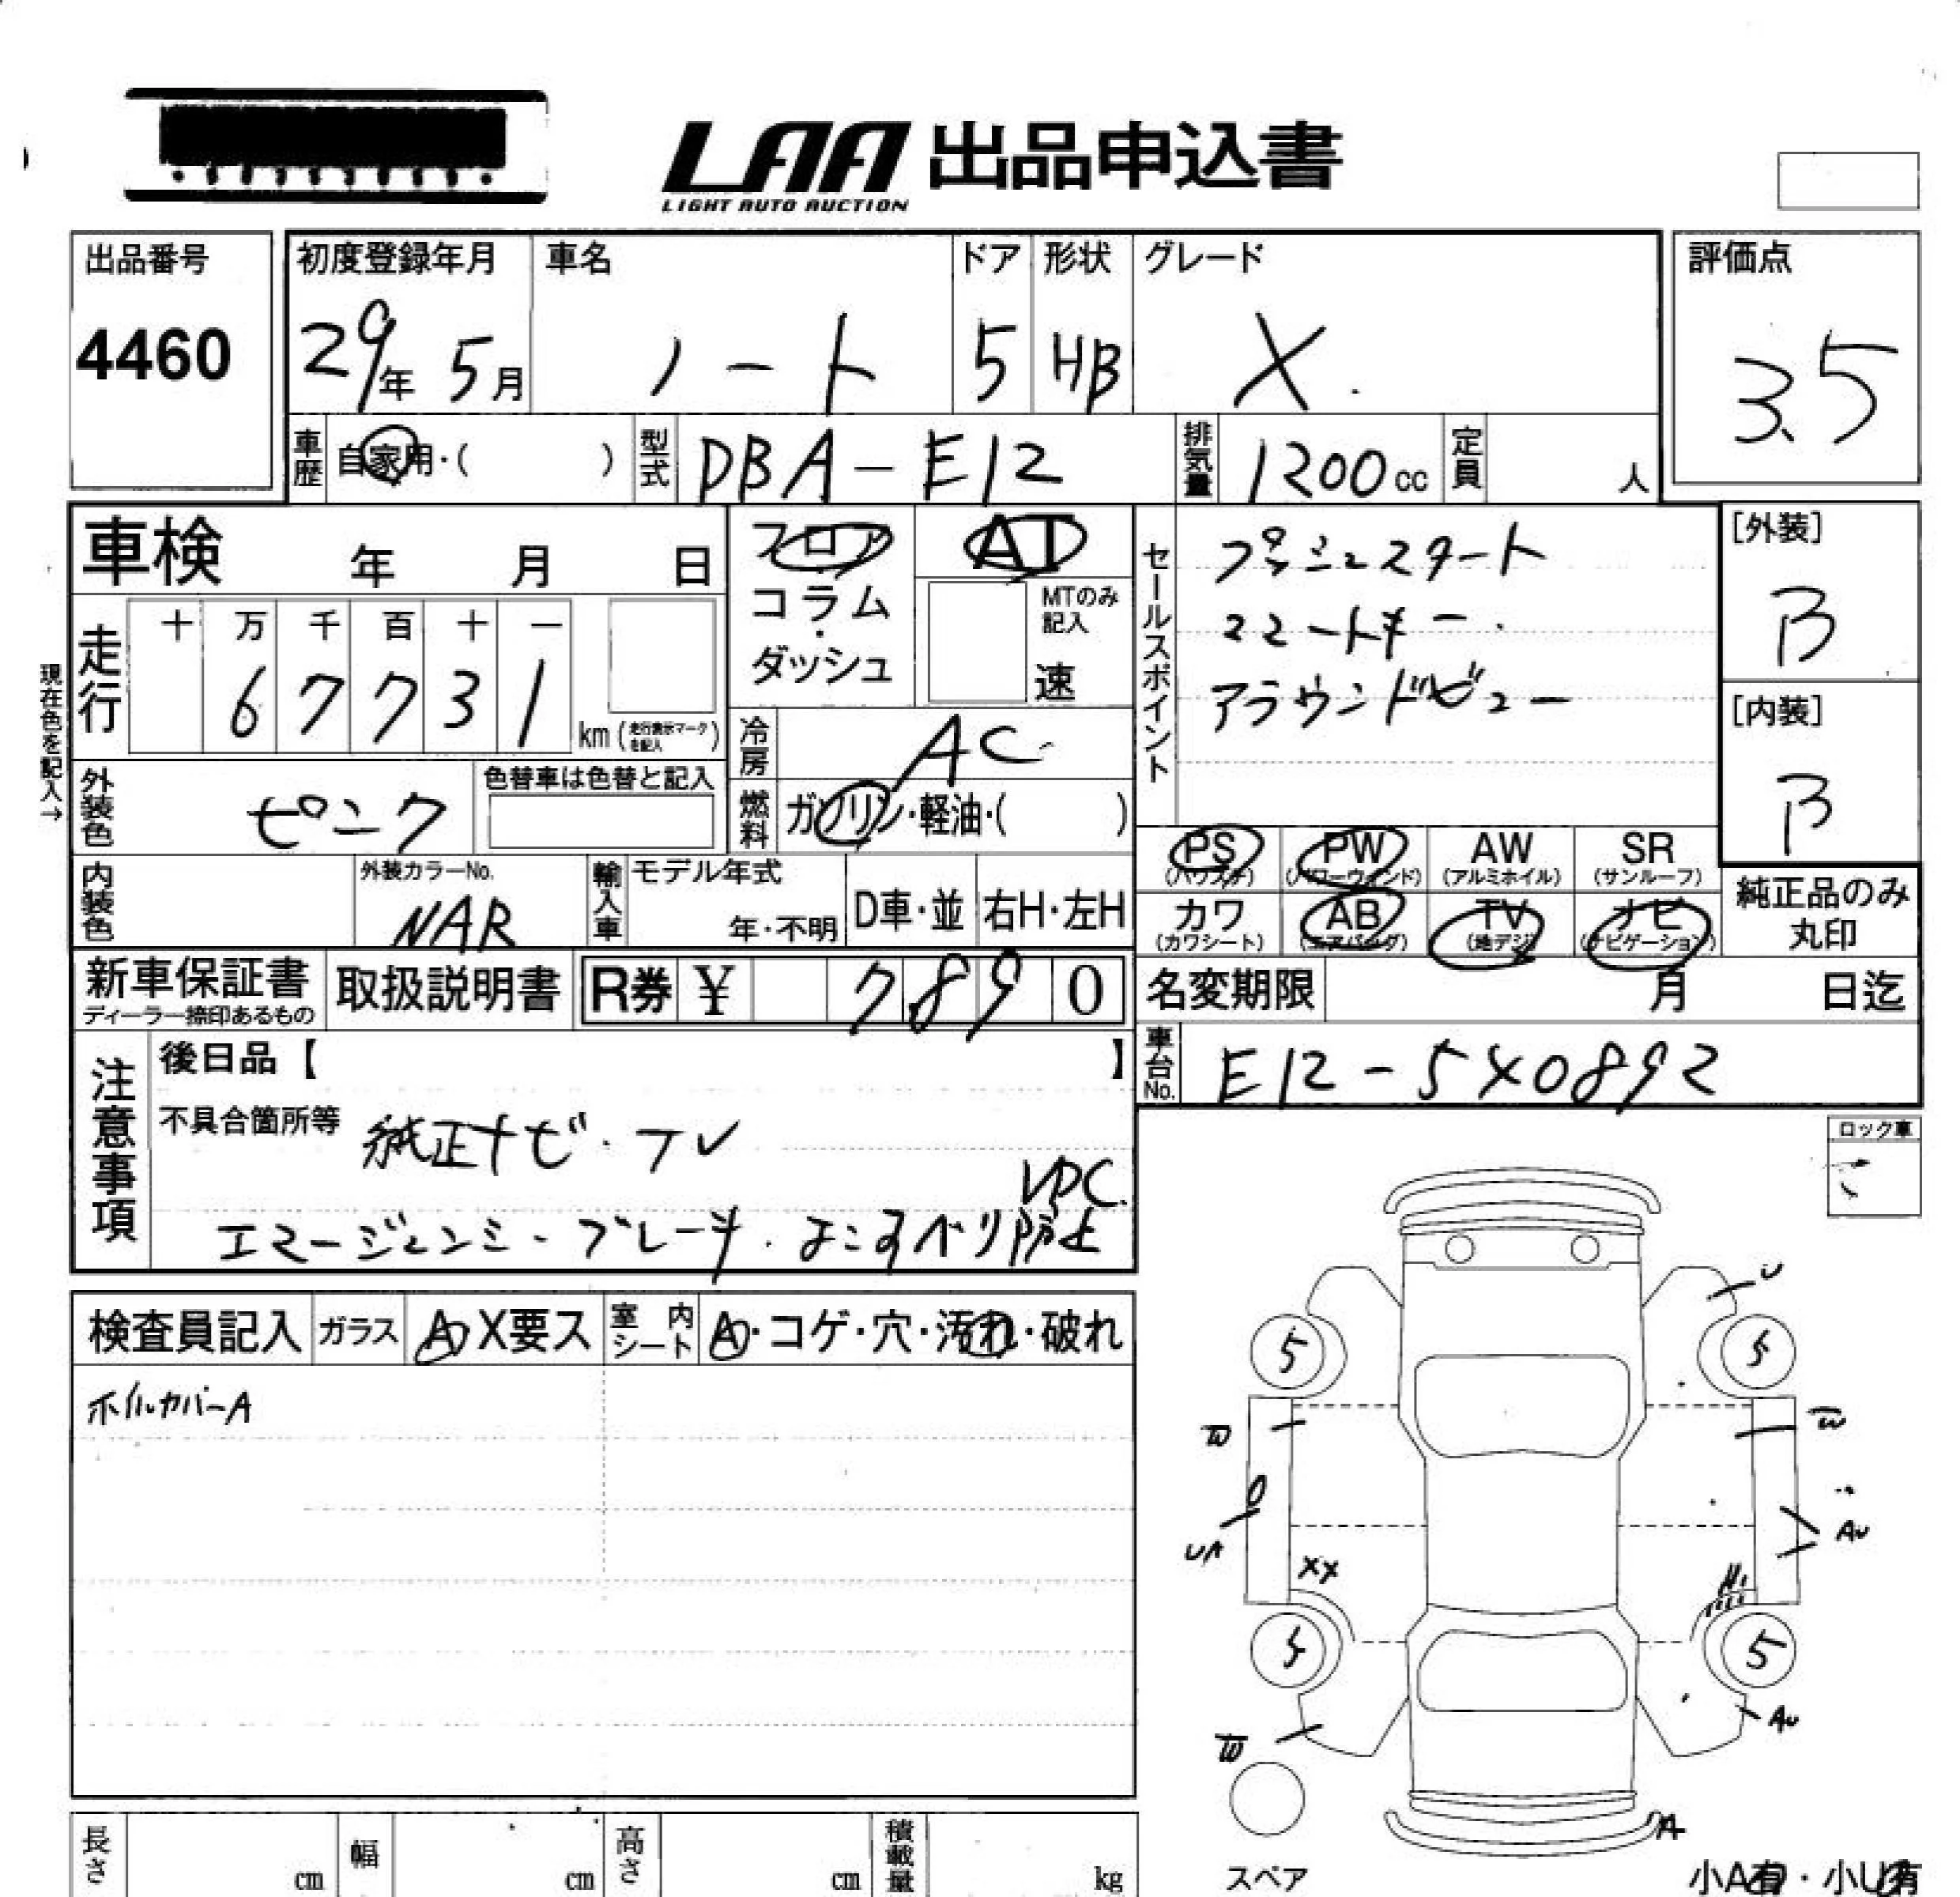 LAA 出品申込書
LIGHT AUTO AUCTION
出品番号 初度登録年月 車名 ドア 形状 グレード 評価点
4460 29年 5月 ノート 5 HB X 3.5
車歴 自家用・( ) 型式 DBA-E12 排気量 1200cc 定員 人
車検 年 月 日
フロア AT
コラム・ MTのみ記入
ダッシュ 速
セールスポイント
プッシュスタート
スマートキー
アラウンドビュー
[外装]
B
[内装]
B
現在色を記入→
走行 十 万 千 百 十 一
6 7 7 3 1 km (走行表示マークを記入)
冷房 AC
外装色 ピンク 色替車は色替と記入
燃料 ガソリン・軽油・( )
PS PW AW SR
(パワステ) (パワーウィンド) (アルミホイル) (サンルーフ)
内装色 外装カラーNo. NAR 輸入車 モデル年式 年・不明 D車・並 右H・左H
カワ AB TV ナビ
(カワシート) (エアバッグ) (地デジ) (ナビゲーション)
純正品のみ
丸印
新車保証書 取扱説明書 R券 ¥ 7 8 9 0
ディーラー捺印あるもの
名変期限 月 日迄
車台No. E12-540892
注意事項
後日品【 】
不具合箇所等 純正ナビ・TV
VDC
エマージェンシーブレーキ・よこすべり防止
ロック車
検査員記入 ガラス A X要ス 室内シート A・コゲ・穴・汚れ・破れ
ホイルカバーA
U
5 5
W W
UA AU
XX
5 5
W AU
A
スペア
長さ cm 幅 cm 高さ cm 積載量 kg
小A有・小U有